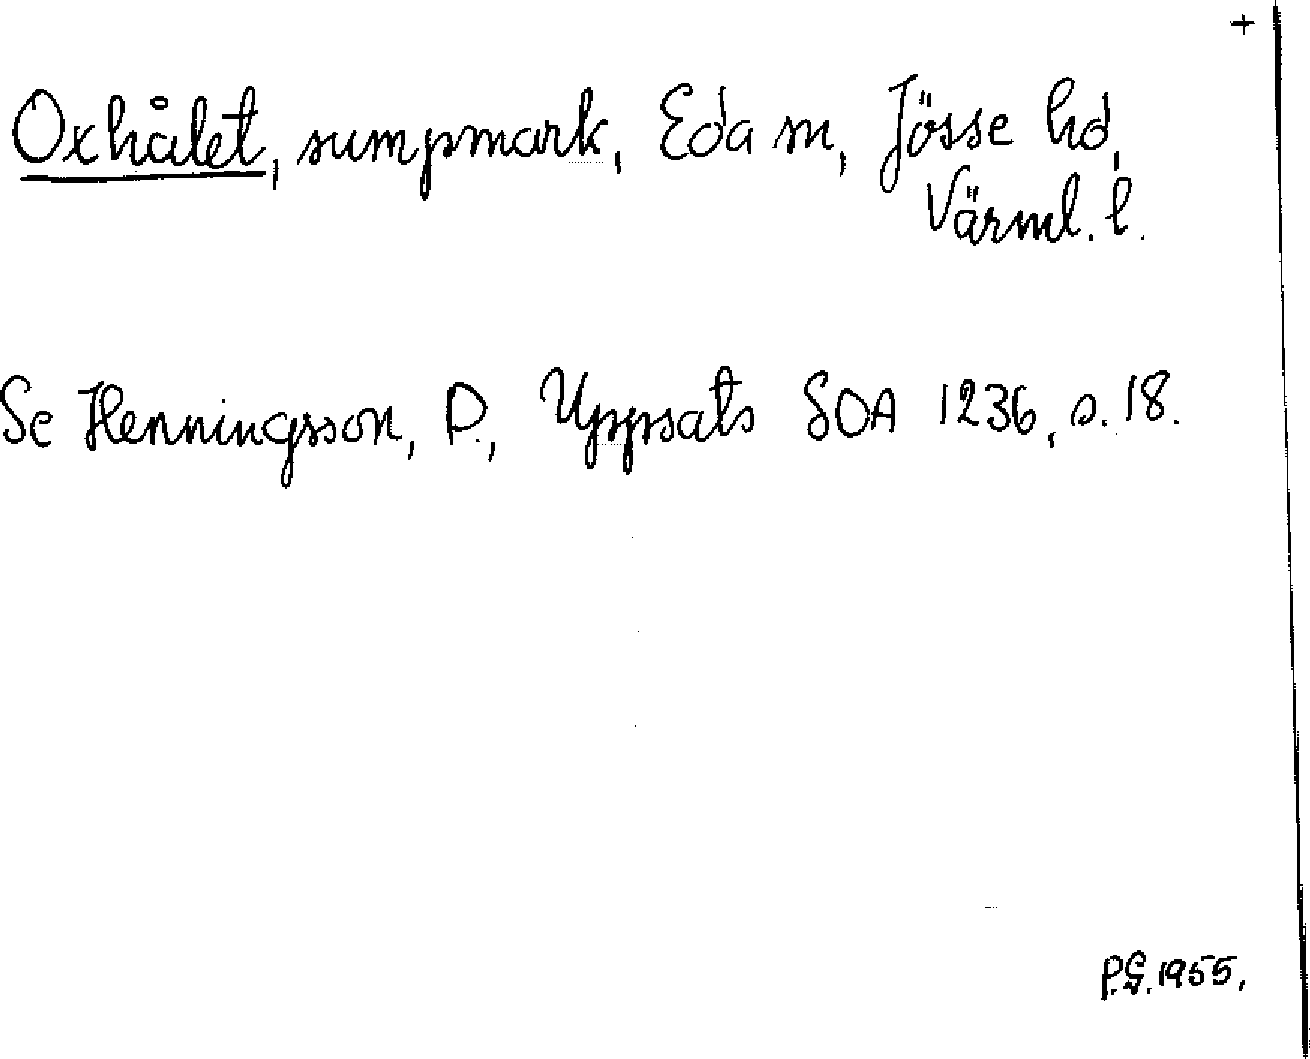 +
Oxhålet, sumpmark, Eda sn, Jösse hd,
Värml. l.
Se Henningsson, P., Uppsats SOA 1236, s. 18.
P.G. 1955.